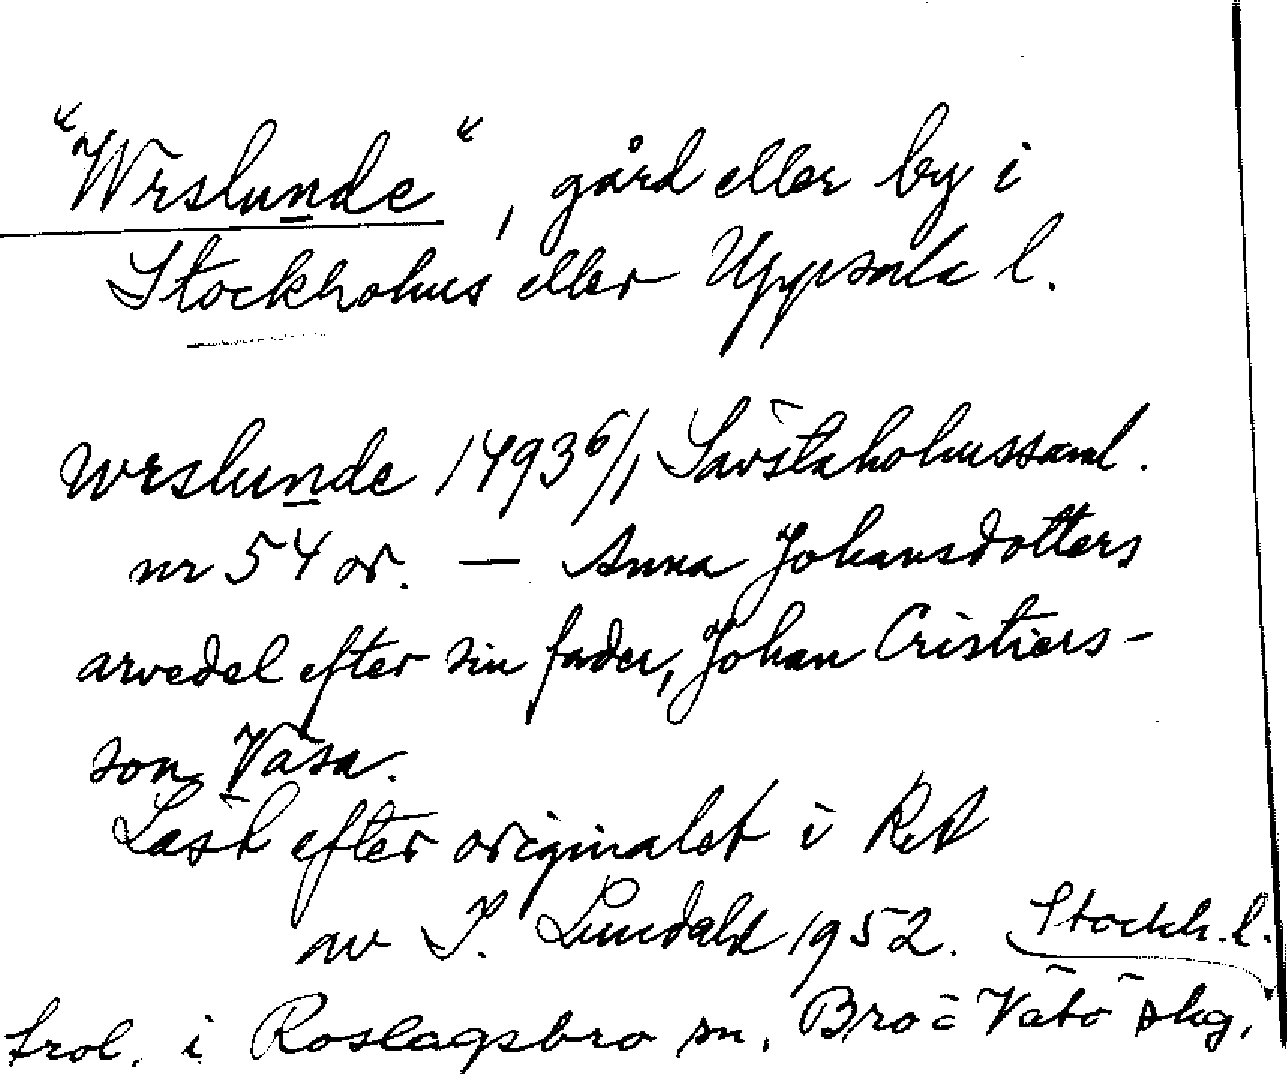 "Wrslunde", gård eller by i
Stockholms eller Uppsala l.
wrslunde 1493 6/1 Sävstaholmssaml.
nr 54 or. — Anna Johansdotters
arvedel efter sin fader, Johan Cristiers-
son Vasa.
Läst efter originalet i RA
av I. Lundahl 1952. Stockh. l.
trol. i Roslagsbro sn, Bro o Vätö skg,